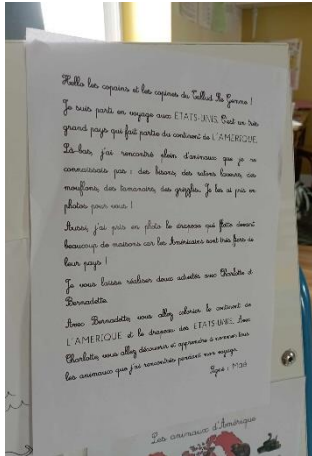 Hello les copains et les copines du Tellud Ste Gemme !
Je suis parti en voyage aux ETATS-UNIS. C'est un très
grand pays qui fait partie du continent de L'AMERIQUE.
Là-bas, j'ai rencontré plein d'animaux que je ne
connaissais pas : des bisons, des ratons laveurs, des
mouflons, des tamanoirs, des grizzlis. Je les ai pris en
photos pour vous !
Aussi, j'ai pris en photo le drapeau qui flotte devant
beaucoup de maisons car les Américains sont très fiers de
leur pays !
Je vous laisse réaliser deux activités avec Charlotte et
Bernadette.
Avec Bernadette, vous allez colorier le continent de
L'AMERIQUE et le drapeau des ETATS-UNIS. Avec
Charlotte, vous allez découvrir et apprendre à nommer tous
les animaux que j'ai rencontrés pendant mon voyage.
Signé :
Les animaux d'Amérique